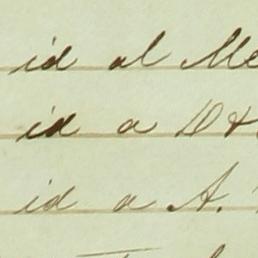 id al Me
id a D&
id a A.